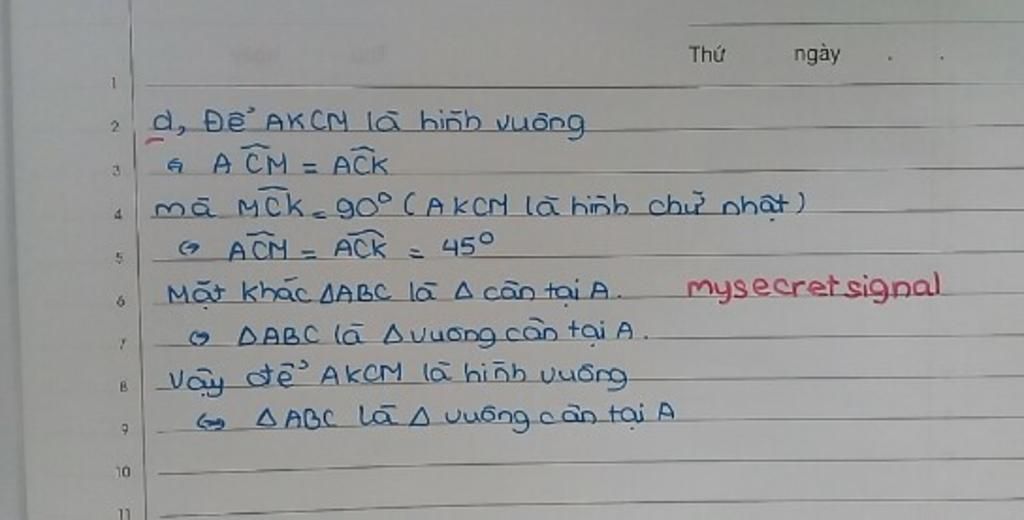 Thứ ngày . .
1
2 d, Để AKCM là hình vuông
3 ⇔ AĈM = AĈK
4 mà MĈK = 90° (AKCM là hình chữ nhật)
5 ⇔ AĈM = AĈK = 45°
6 Mặt khác ΔABC là Δ cân tại A. mysecretsignal
7 ⇔ ΔABC là Δ vuông cân tại A.
8 Vậy để AKCM là hình vuông
9 ⇔ ΔABC là Δ vuông cân tại A
10
11